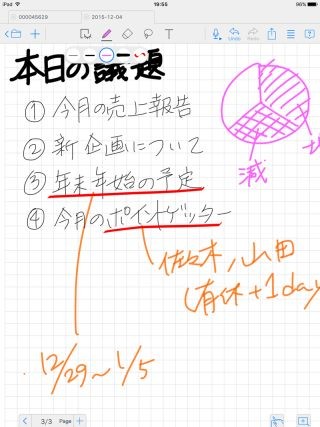 iPad
19:55
100%
000045629
2015-12-04
本日の議題
① 今月の売上報告
② 新企画について
③ 年末年始の予定
④ 今月のポイントゲッター
減
佐々木/山田
(有休+1day
12/29〜1/5
3/3 Page